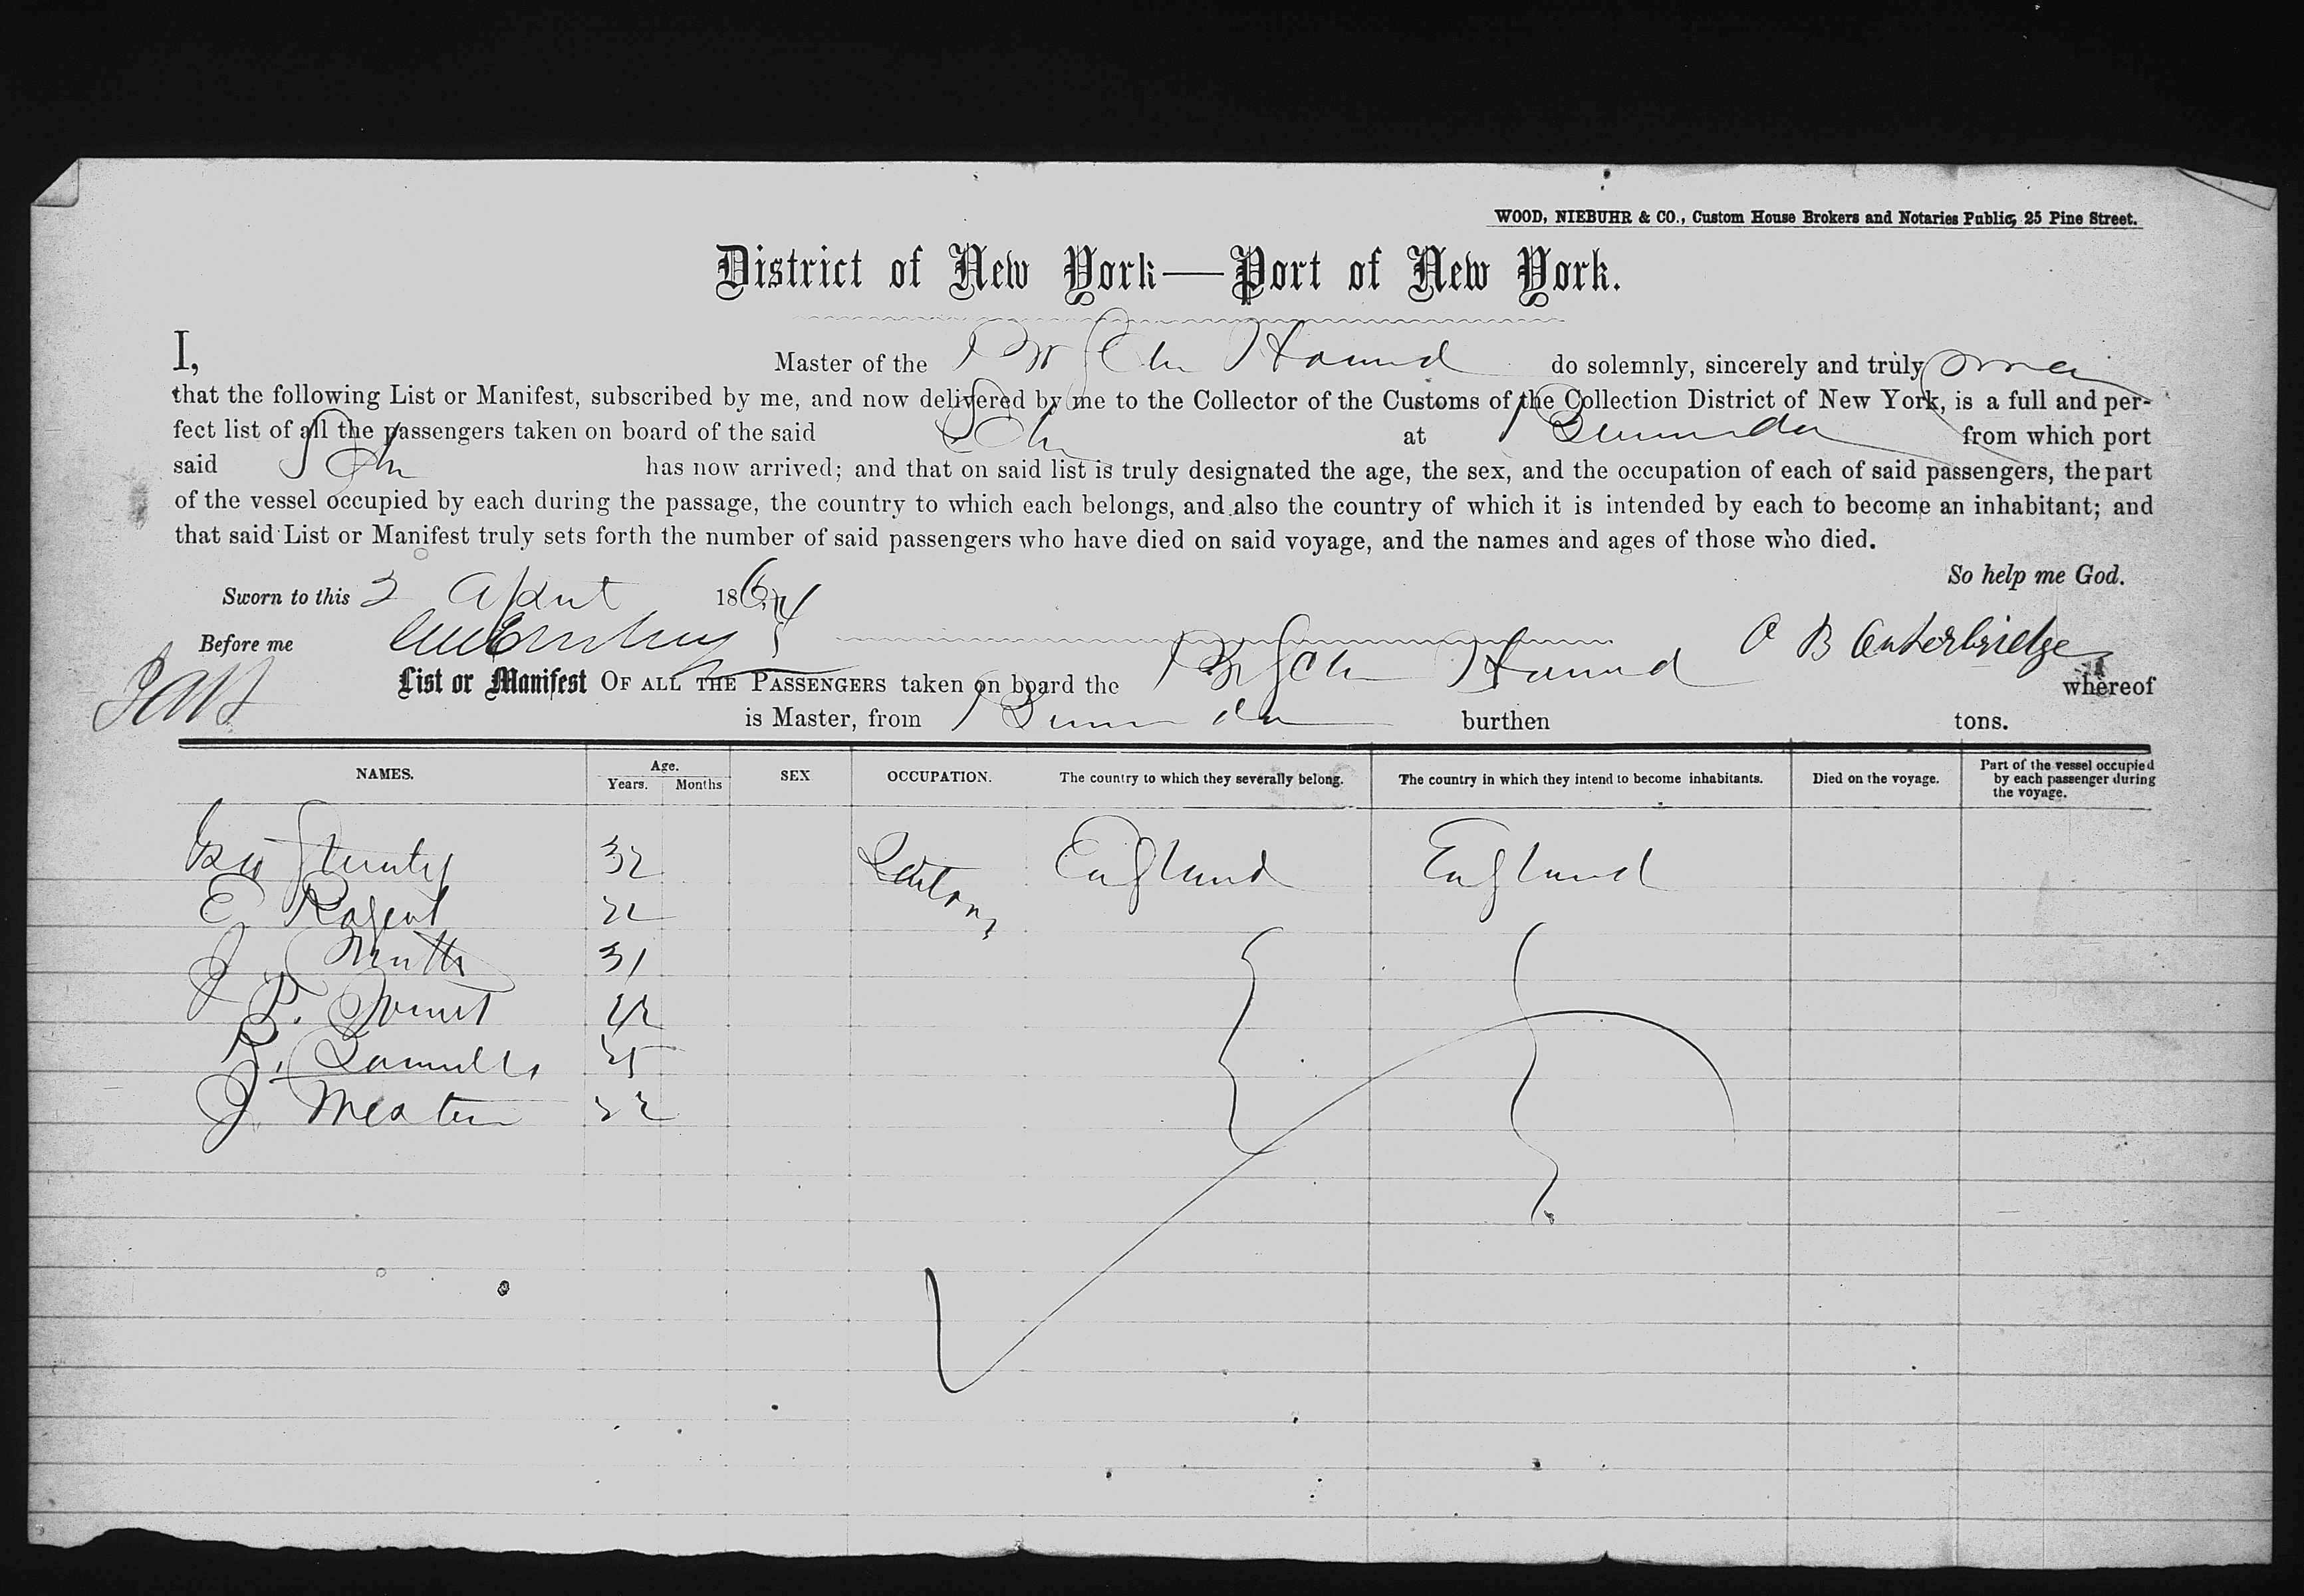 WOOD, NIEBUHR & CO., Custom House Brokers and Notaries Public, 25 Pine Street.
District of New York—Port of New York.
I, Master of the Br Sch Hound do solemnly, sincerely and truly swear
that the following List or Manifest, subscribed by me, and now delivered by me to the Collector of the Customs of the Collection District of New York, is a full and per-
fect list of all the passengers taken on board of the said Sch at Bermuda from which port
said Sch has now arrived; and that on said list is truly designated the age, the sex, and the occupation of each of said passengers, the part
of the vessel occupied by each during the passage, the country to which each belongs, and also the country of which it is intended by each to become an inhabitant; and
that said List or Manifest truly sets forth the number of said passengers who have died on said voyage, and the names and ages of those who died.
So help me God.
Sworn to this 2 April 1864
Before me
B Outerbridge
List or Manifest OF ALL THE PASSENGERS taken on board the Br Sch Hound whereof
is Master, from Bermuda burthen tons.
NAMES. Age. Years. Months SEX OCCUPATION. The country to which they severally belong. The country in which they intend to become inhabitants. Died on the voyage. Part of the vessel occupied by each passenger during the voyage.
32 England England
E 22
J Smith 31
P. 42
25
J. 22